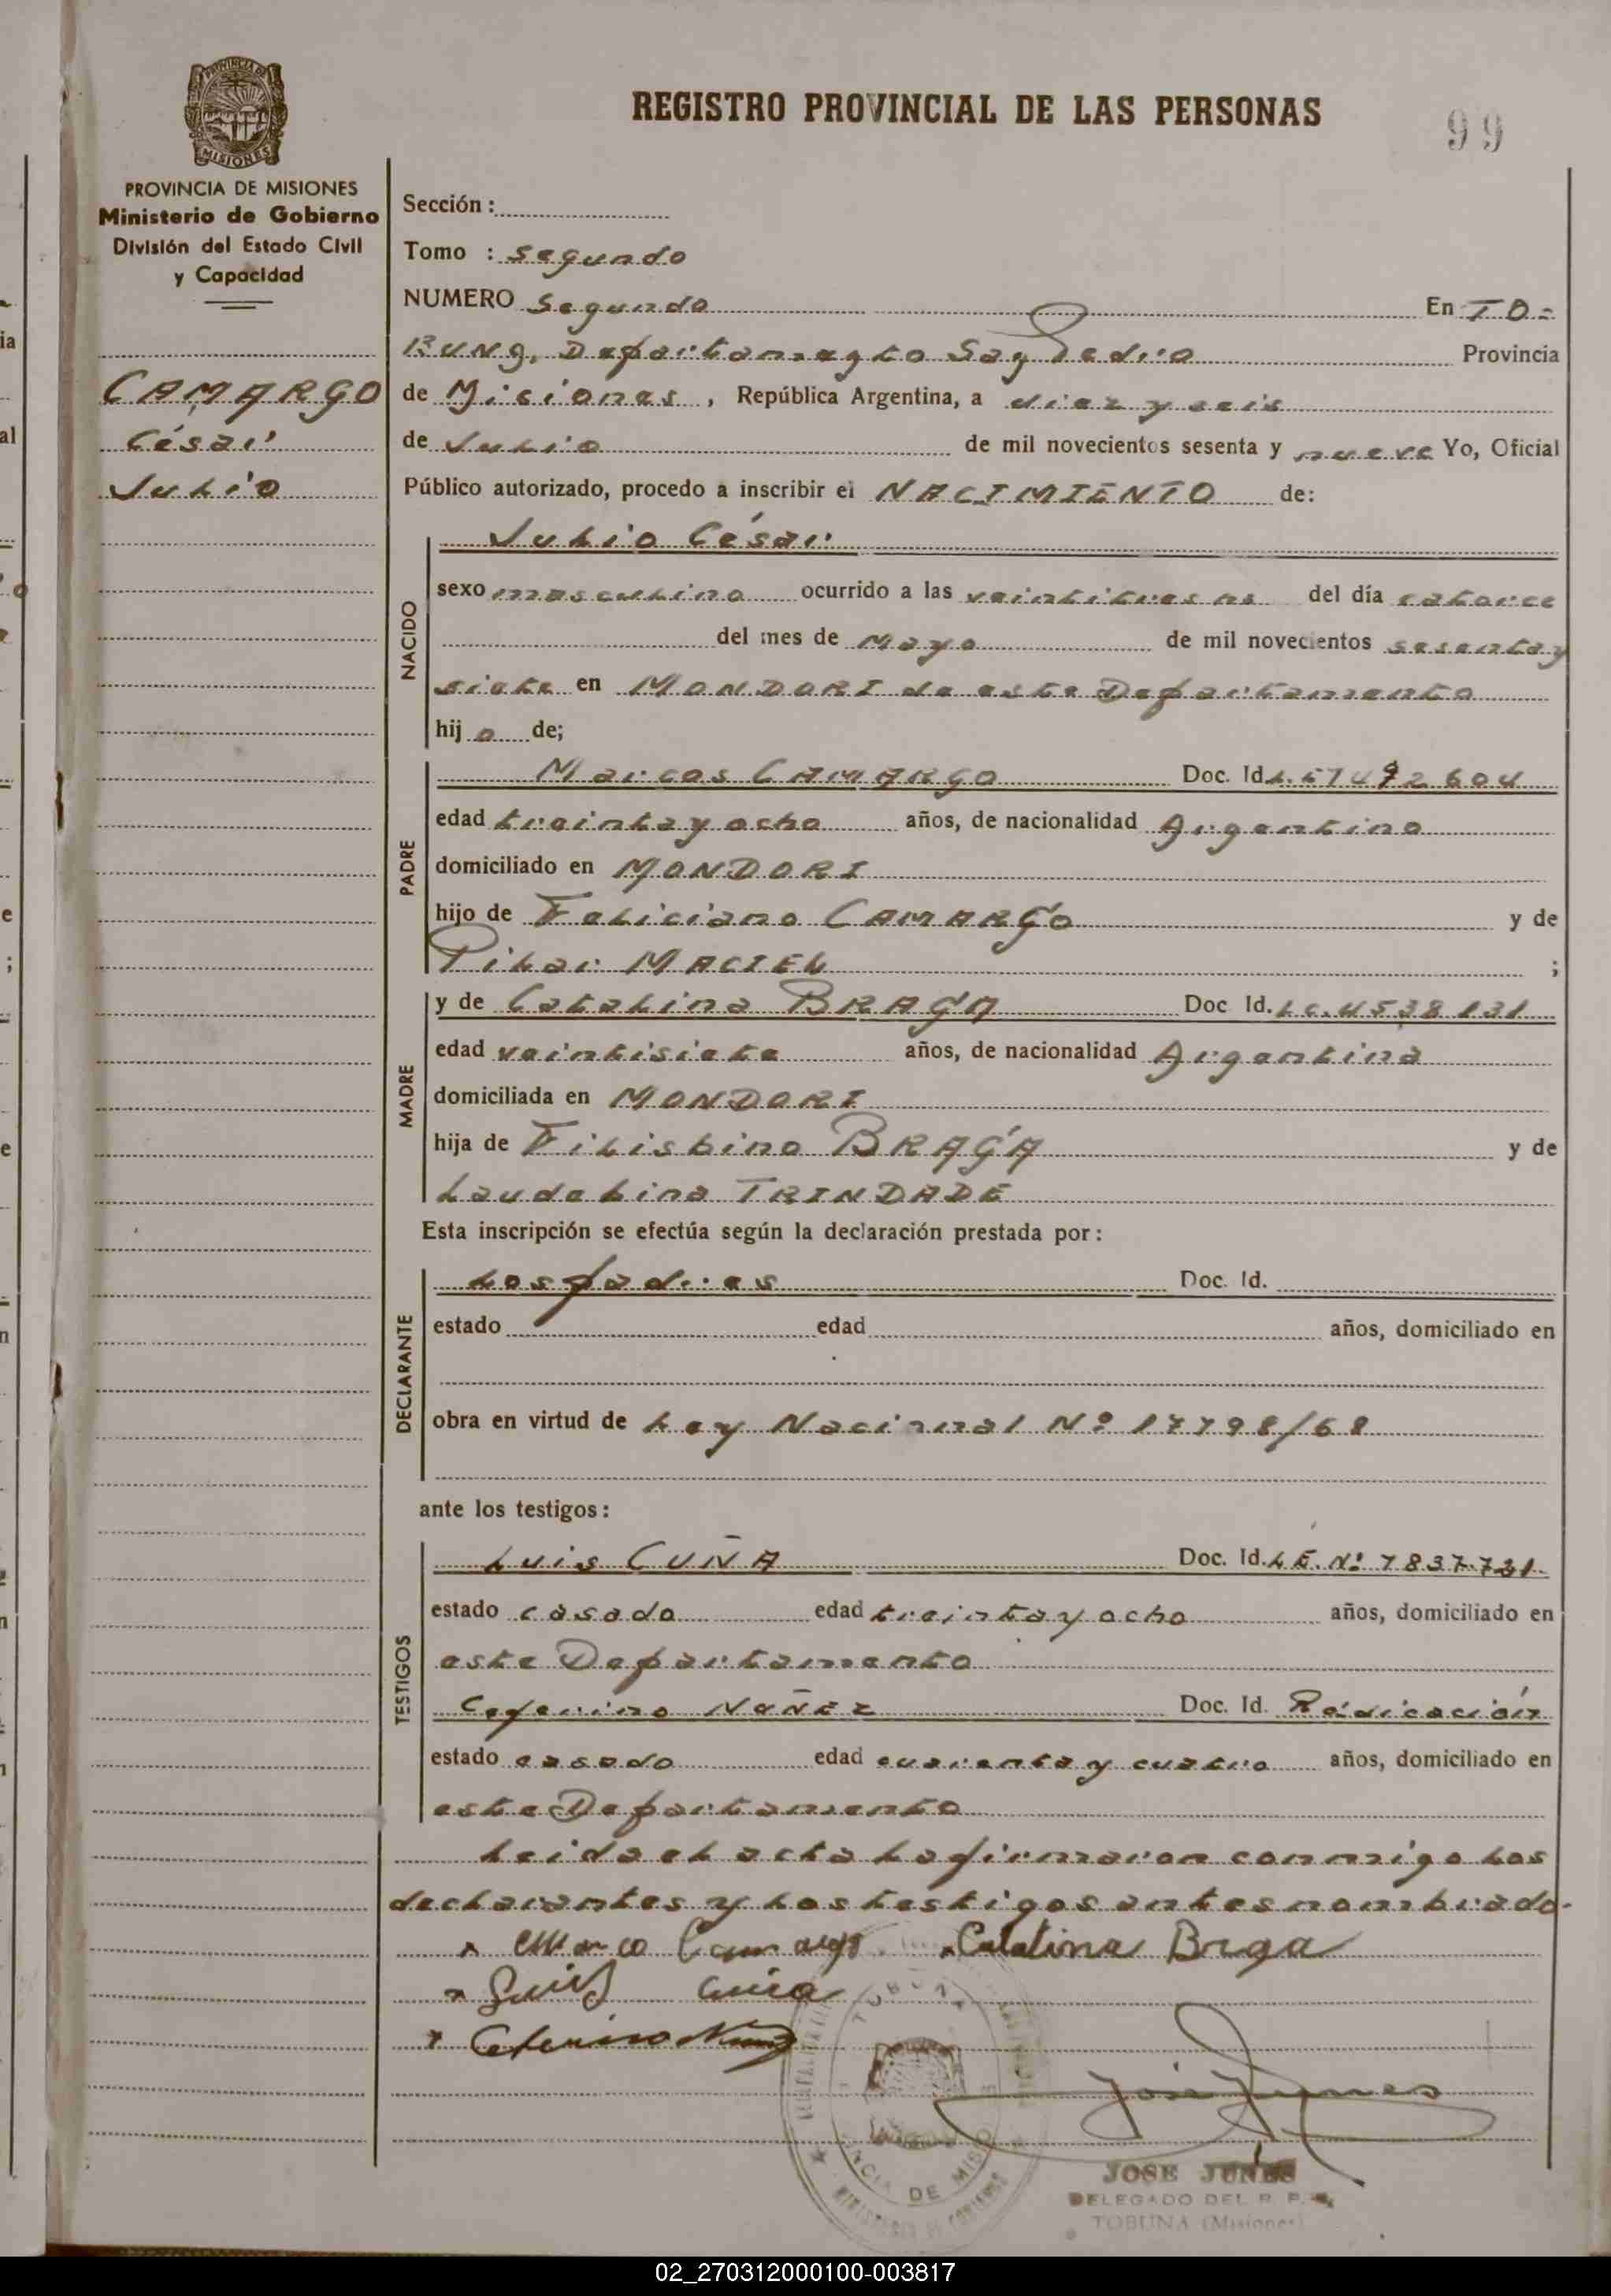 REGISTRO PROVINCIAL DE LAS PERSONAS
99
PROVINCIA DE MISIONES
Ministerio de Gobierno
División del Estado Civil
y Capacidad
CAMARGO
César
Julio
Sección :
Tomo : Segundo
NUMERO Segundo En TO=
BUNA, Departamento San Pedro Provincia
de Misiones, República Argentina, a diez y seis
de Julio de mil novecientos sesenta y nueve Yo, Oficial
Público autorizado, procedo a inscribir el NACIMIENTO de:
NACIDO
Julio César
sexo masculino ocurrido a las veintitres hs del día catorce
del mes de Mayo de mil novecientos sesenta y
siete en MONDORI de este Departamento
hij o de;
PADRE
Marcos CAMARGO Doc. Id. L.E 7492604
edad treinta y ocho años, de nacionalidad Argentino
domiciliado en MONDORI
hijo de Feliciano CAMARGO y de
Pilar MACIEL ;
MADRE
y de Catalina BRAGA Doc Id. L.C. 4538131
edad veintisiete años, de nacionalidad Argentina
domiciliada en MONDORI
hija de Filisbino BRAGA y de
Laudelina TRINDADE
Esta inscripción se efectúa según la declaración prestada por :
DECLARANTE
Los padres Doc. Id.
estado edad años, domiciliado en
obra en virtud de Ley Nacional Nº 17798/68
ante los testigos :
TESTIGOS
Luis CUÑA Doc. Id. L.E. Nº 7837.731
estado casado edad treinta y ocho años, domiciliado en
este Departamento
Ceferino NUÑEZ Doc. Id. Rádicación
estado casado edad cuarenta y cuatro años, domiciliado en
este Departamento
Leida el acta la firmaron conmigo los
declarantes y los testigos antes nombrado.
x Marco Camargo x Catalina Brga
x Luis Cuña
x Ceferino Nuñez
José Junes
DE MIS
JOSE JUNES
DELEGADO DEL R. P.
TOBUNA (Misiones)
02_270312000100-003817